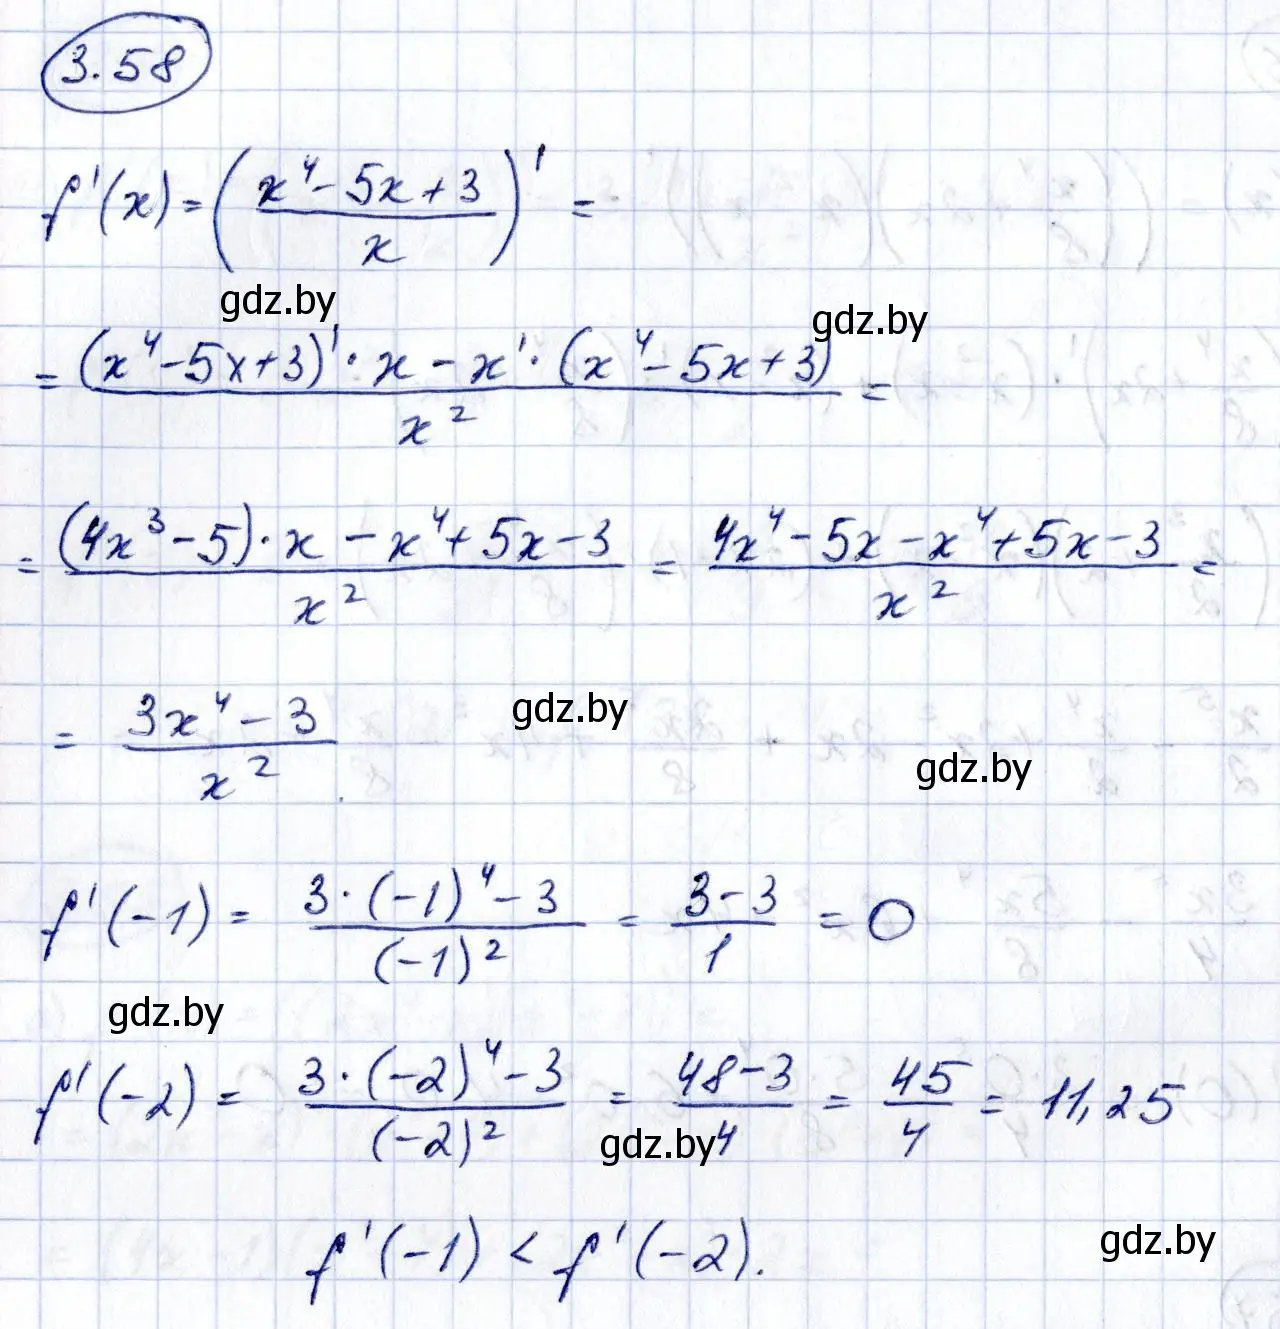 3.58
f'(x) = ((x⁴ - 5x + 3)/x)' =
gdz.by
gdz.by
= ((x⁴ - 5x + 3)' · x - x' · (x⁴ - 5x + 3))/x² =
= ((4x³ - 5) · x - x⁴ + 5x - 3)/x² = (4x⁴ - 5x - x⁴ + 5x - 3)/x² =
= (3x⁴ - 3)/x².
gdz.by
gdz.by
f'(-1) = (3 · (-1)⁴ - 3)/(-1)² = (3 - 3)/1 = 0
gdz.by
f'(-2) = (3 · (-2)⁴ - 3)/(-2)² = (48 - 3)/4 = 45/4 = 11,25
gdz.by
f'(-1) < f'(-2).
gdz.by